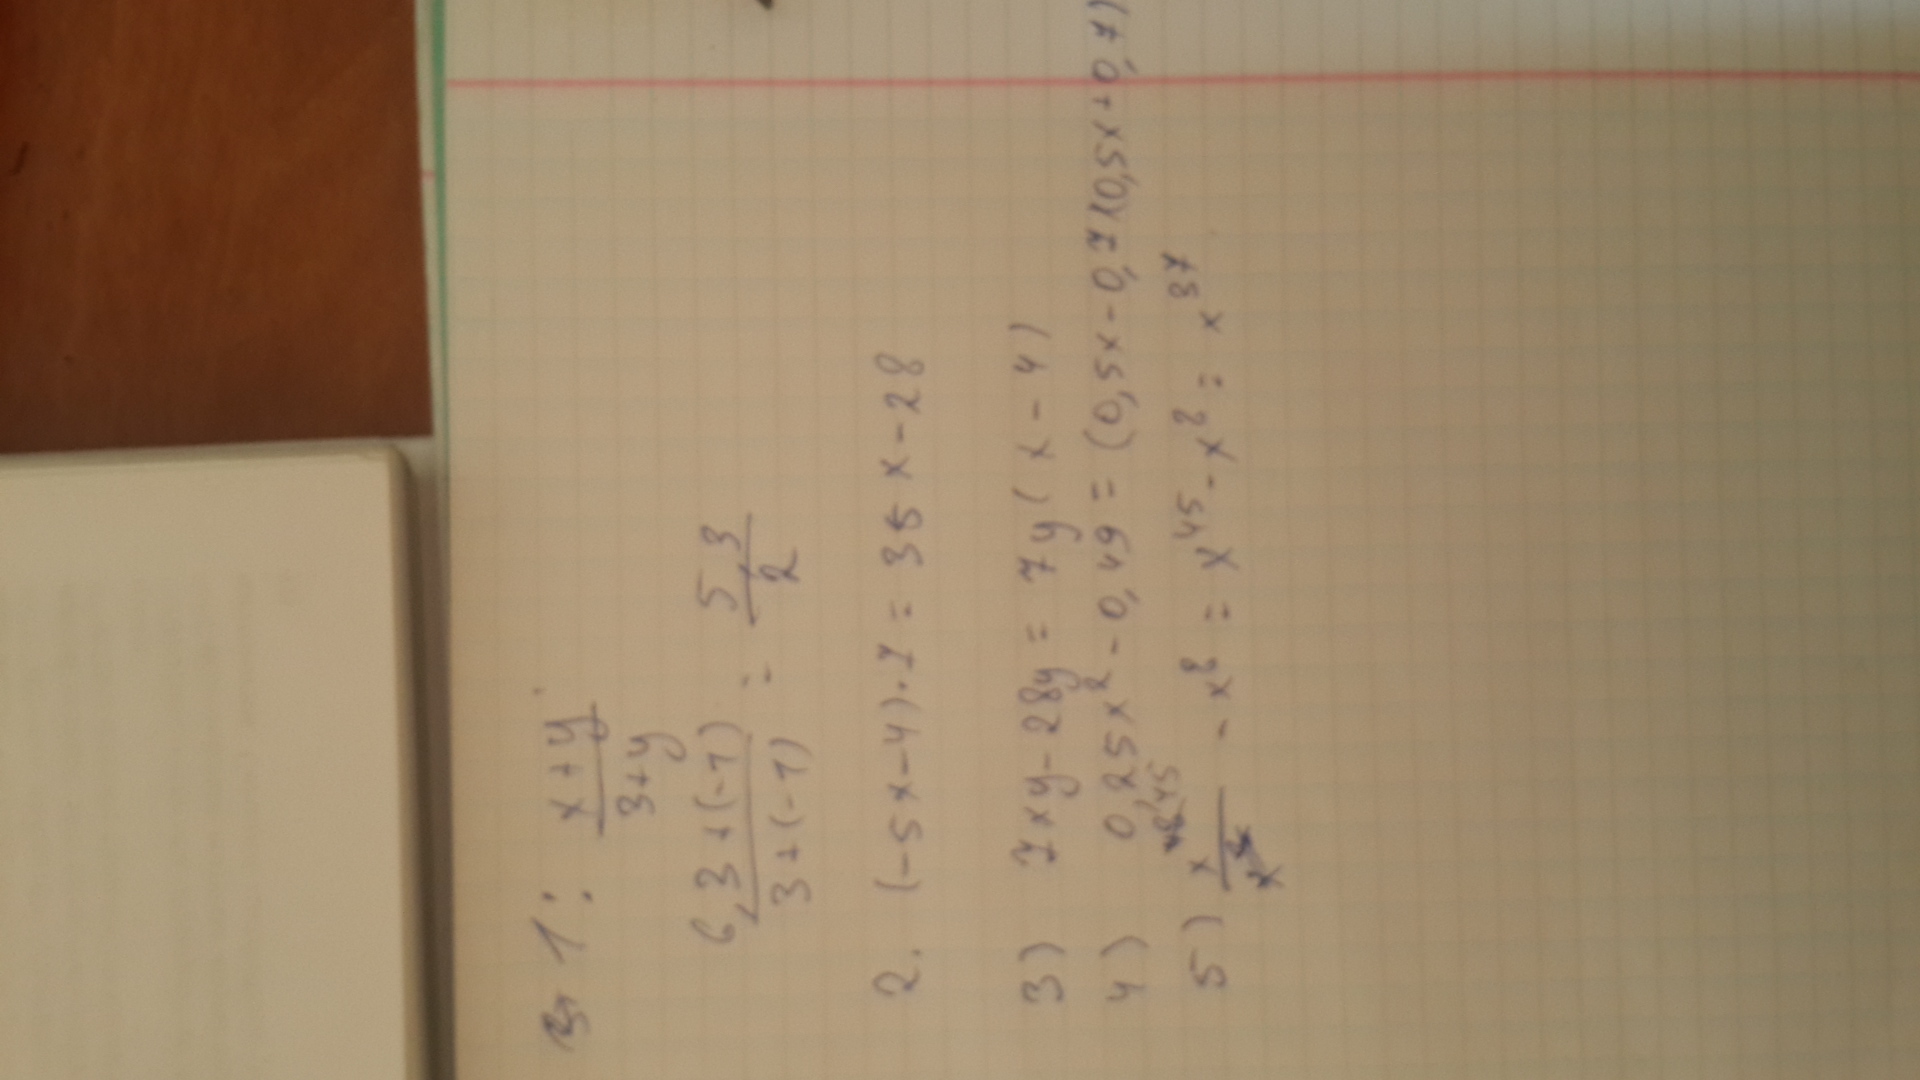 В-1: x+y
3+y
6,3+(-1) = 5,3
3+(-1) 2
2. (-5x-4)·7 = 35x-28
3) 7xy-28y = 7y(x-4)
4) 0,25x² - 0,49 = (0,5x-0,7)(0,5x+0,7)
5) x - x⁸ = x⁴⁵ - x⁸ = x³⁷